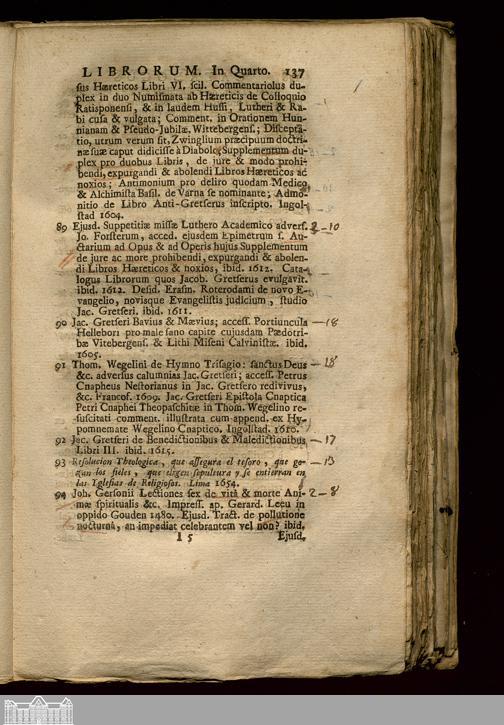 LIBRORUM. In Quarto. 137
sus Hæreticos Libri VI. scil. Commentariolus du-
plex in duo Numismata ab Hæreticis de Colloquio
Ratisponensi, & in laudem Hussi, Lutheri & Ra-
bi cusa & vulgata; Comment. in Orationem Hun-
nianam & Pseudo-Jubilæ. Wittebergens.; Discepta-
tio, utrum verum sit, Zwinglium præcipuum doctri-
næ suæ caput didicisse à Diabolo; Supplementum du-
plex pro duobus Libris, de jure & modo prohi-
bendi, expurgandi & abolendi Libros Hæreticos ac
noxios; Antimonium pro deliro quodam Medico
& Alchimista Basil. de Varna se nominante; Admo-
nitio de Libro Anti-Gretserus inscripto. Ingol-
stad 1604.
89 Ejusd. Suppetitiæ missæ Luthero Academico advers. 2-10
Jo. Forsterum, acced. ejusdem Epimetrum s. Au-
ctarium ad Opus & ad Operis hujus Supplementum
de jure ac more prohibendi, expurgandi & abolen-
di Libros Hæreticos & noxios, ibid. 1612. Cata-
logus Librorum quos Jacob. Gretserus evulgavit.
ibid. 1612. Desid. Erasm. Roterodami de novo E-
vangelio, novisque Evangelistis judicium, studio
Jac. Gretseri. ibid. 1611.
90 Jac. Gretseri Bavius & Mævius; access. Portiuncula —18
Hellebori pro male sano capite cujusdam Pædotri-
bæ Vitebergens. & Lithi Miseni Calvinistæ. ibid.
1605.
91 Thom. Wegelini de Hymno Trisagio: sanctus Deus —18
&c. adversus calumnias Jac. Gretseri; access. Petrus
Cnapheus Nestorianus in Jac. Gretsero redivivus,
&c. Francof. 1609. Jac. Gretseri Epistola Cnaptica
Petri Cnaphei Theopaschitæ in Thom. Wegelino re-
suscitati comment. illustrata cum append. ex Hy-
pomnemate Wegelino Cnaptico. Ingolstad. 1610.
92 Jac. Gretseri de Benedictionibus & Maledictionibus —17
Libri III. ibid. 1615.
93 Resolucion Theologica, que assegura el tesoro, que ge- —13
zan los fieles, que eligen sepultura y se entierran en
las Yglesias de Religiosos. Lima 1654.
94 Joh. Gersonii Lectiones sex de vita & morte Ani- 2-8
mæ spiritualis &c. Impress. ap. Gerard. Leeu in
oppido Gouden 1480. Ejusd. Tract. de pollutione
nocturna, an impediat celebrantem vel non? ibid.
I 5 Ejusd.